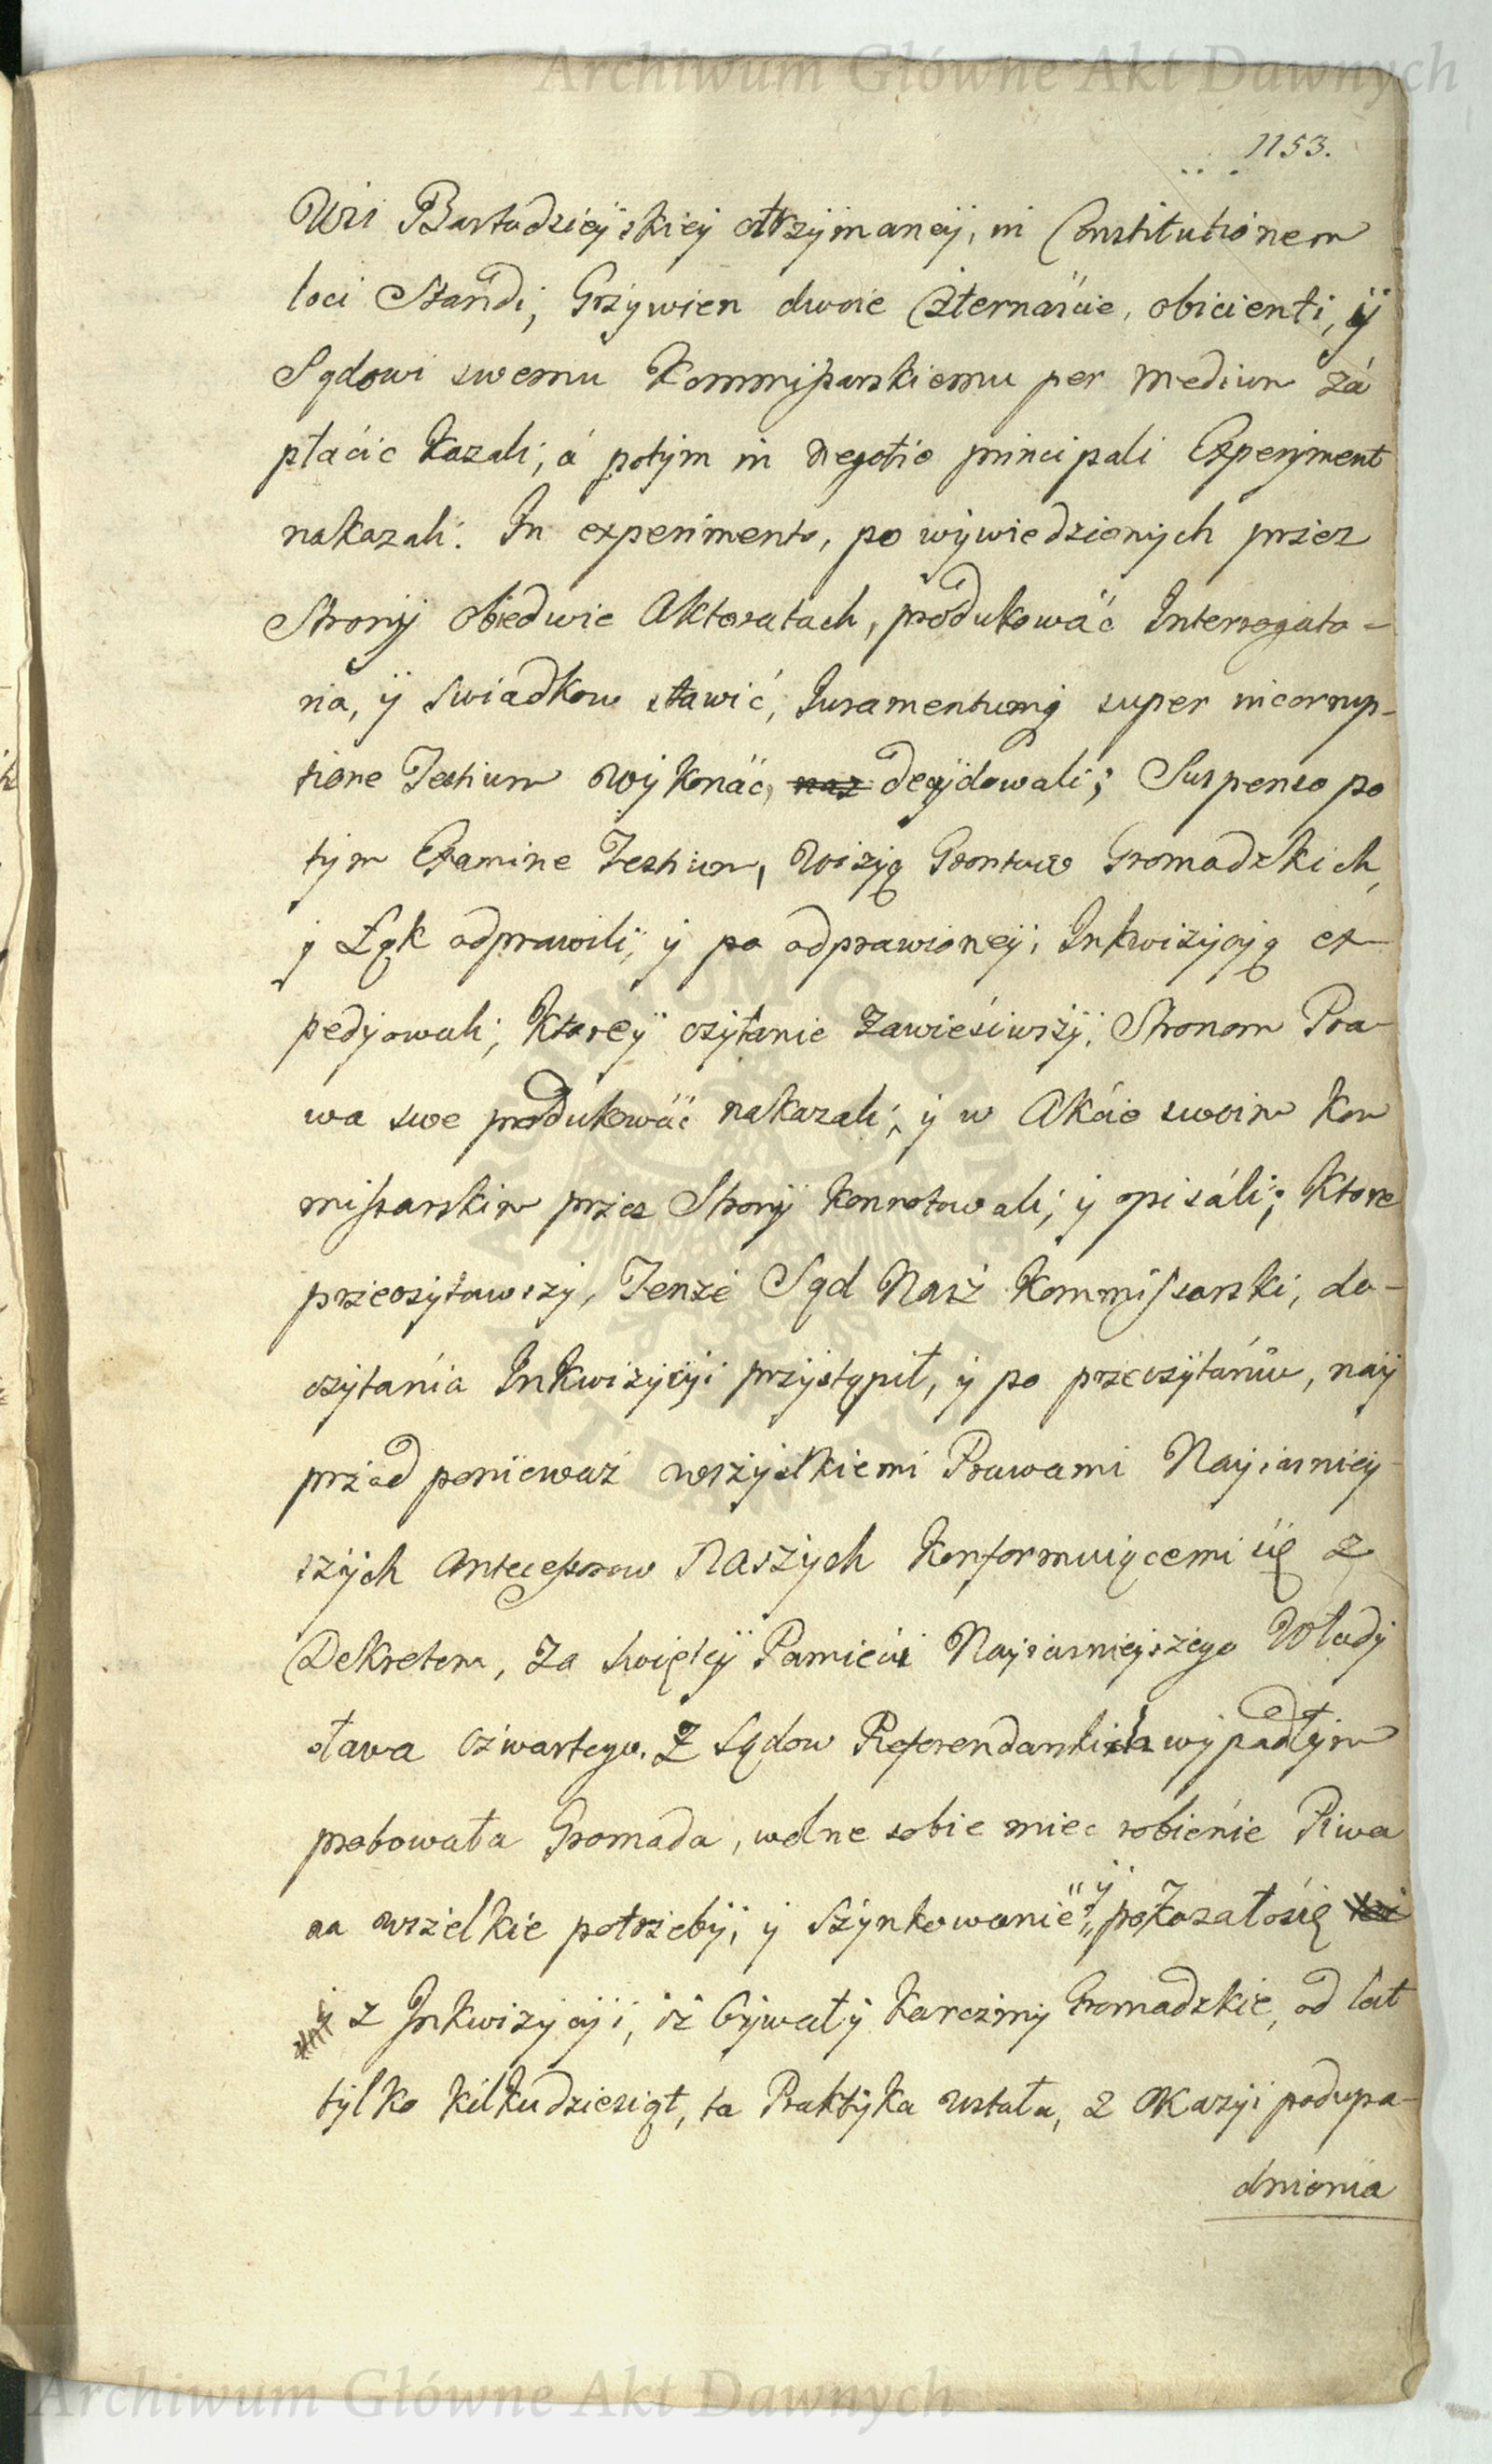 Archiwum Główne Akt Dawnych
1153.
Wsi Bartodzieÿskieÿ otrzÿmaneÿ, in Constitutionem
loci Standi, Grzywien dwoie Czternaście, obicienti, ÿ
Sądowi swemu Kommissarskiemu per medium zá
płácic kazali, á potÿm in negotio principali Experÿment
nakazali. In experimento, po wÿwiedzionÿch przez
Stronÿ obiedwie Aktoratach, produkowáć Interrogato-
ria, ÿ Swiadkow stawić, Juramentumq super incorrup-
tione Testium wÿkonáć, naz decÿdowali; Suspenso po
tÿm Examine Testium, Wizÿą Grontow Gromadzkich,
ÿ Łąk odprawili, ÿ po odprawioneÿ, Inkwizÿcÿą ex
pedÿowali, ktoreÿ czÿtanie zawiesiwszÿ, Stronom Pra
wa swe produkowáć nakazali, ÿ w Akcie swoim kom
missarskim przez Stronÿ konnotowali, ÿ opisáli; ktore
przeczÿtawszÿ, Tenże Sąd Nasz Kommissarski, do-
czÿtania Inkwizÿcÿi przÿstąpił, ÿ po przeczÿtániu, naÿ
przod ponieważ wszÿstkiemi Prawami Naÿiasnieÿ
szÿch Antecessorow Naszÿch konformuiącemi się z
Dekretem, za swięteÿ Pamięci Naÿiasnieÿszego Władÿ
sława czwartego, z Sądow Referendarskich wÿpadłÿm
probowała Gromada, wolne sobie miec robienie Piwa
na wszelkie potrzebÿ, ÿ szÿnkowanie, ÿ pokazałosię
ÿ z Inkwizÿcÿi, iż bÿwałÿ karczmÿ Gromadzkie, od lat
tÿlko kilkudziesiąt, ta Praktÿka ustała, z okazÿi podupa-
dnienia
Archiwum Główne Akt Dawnych